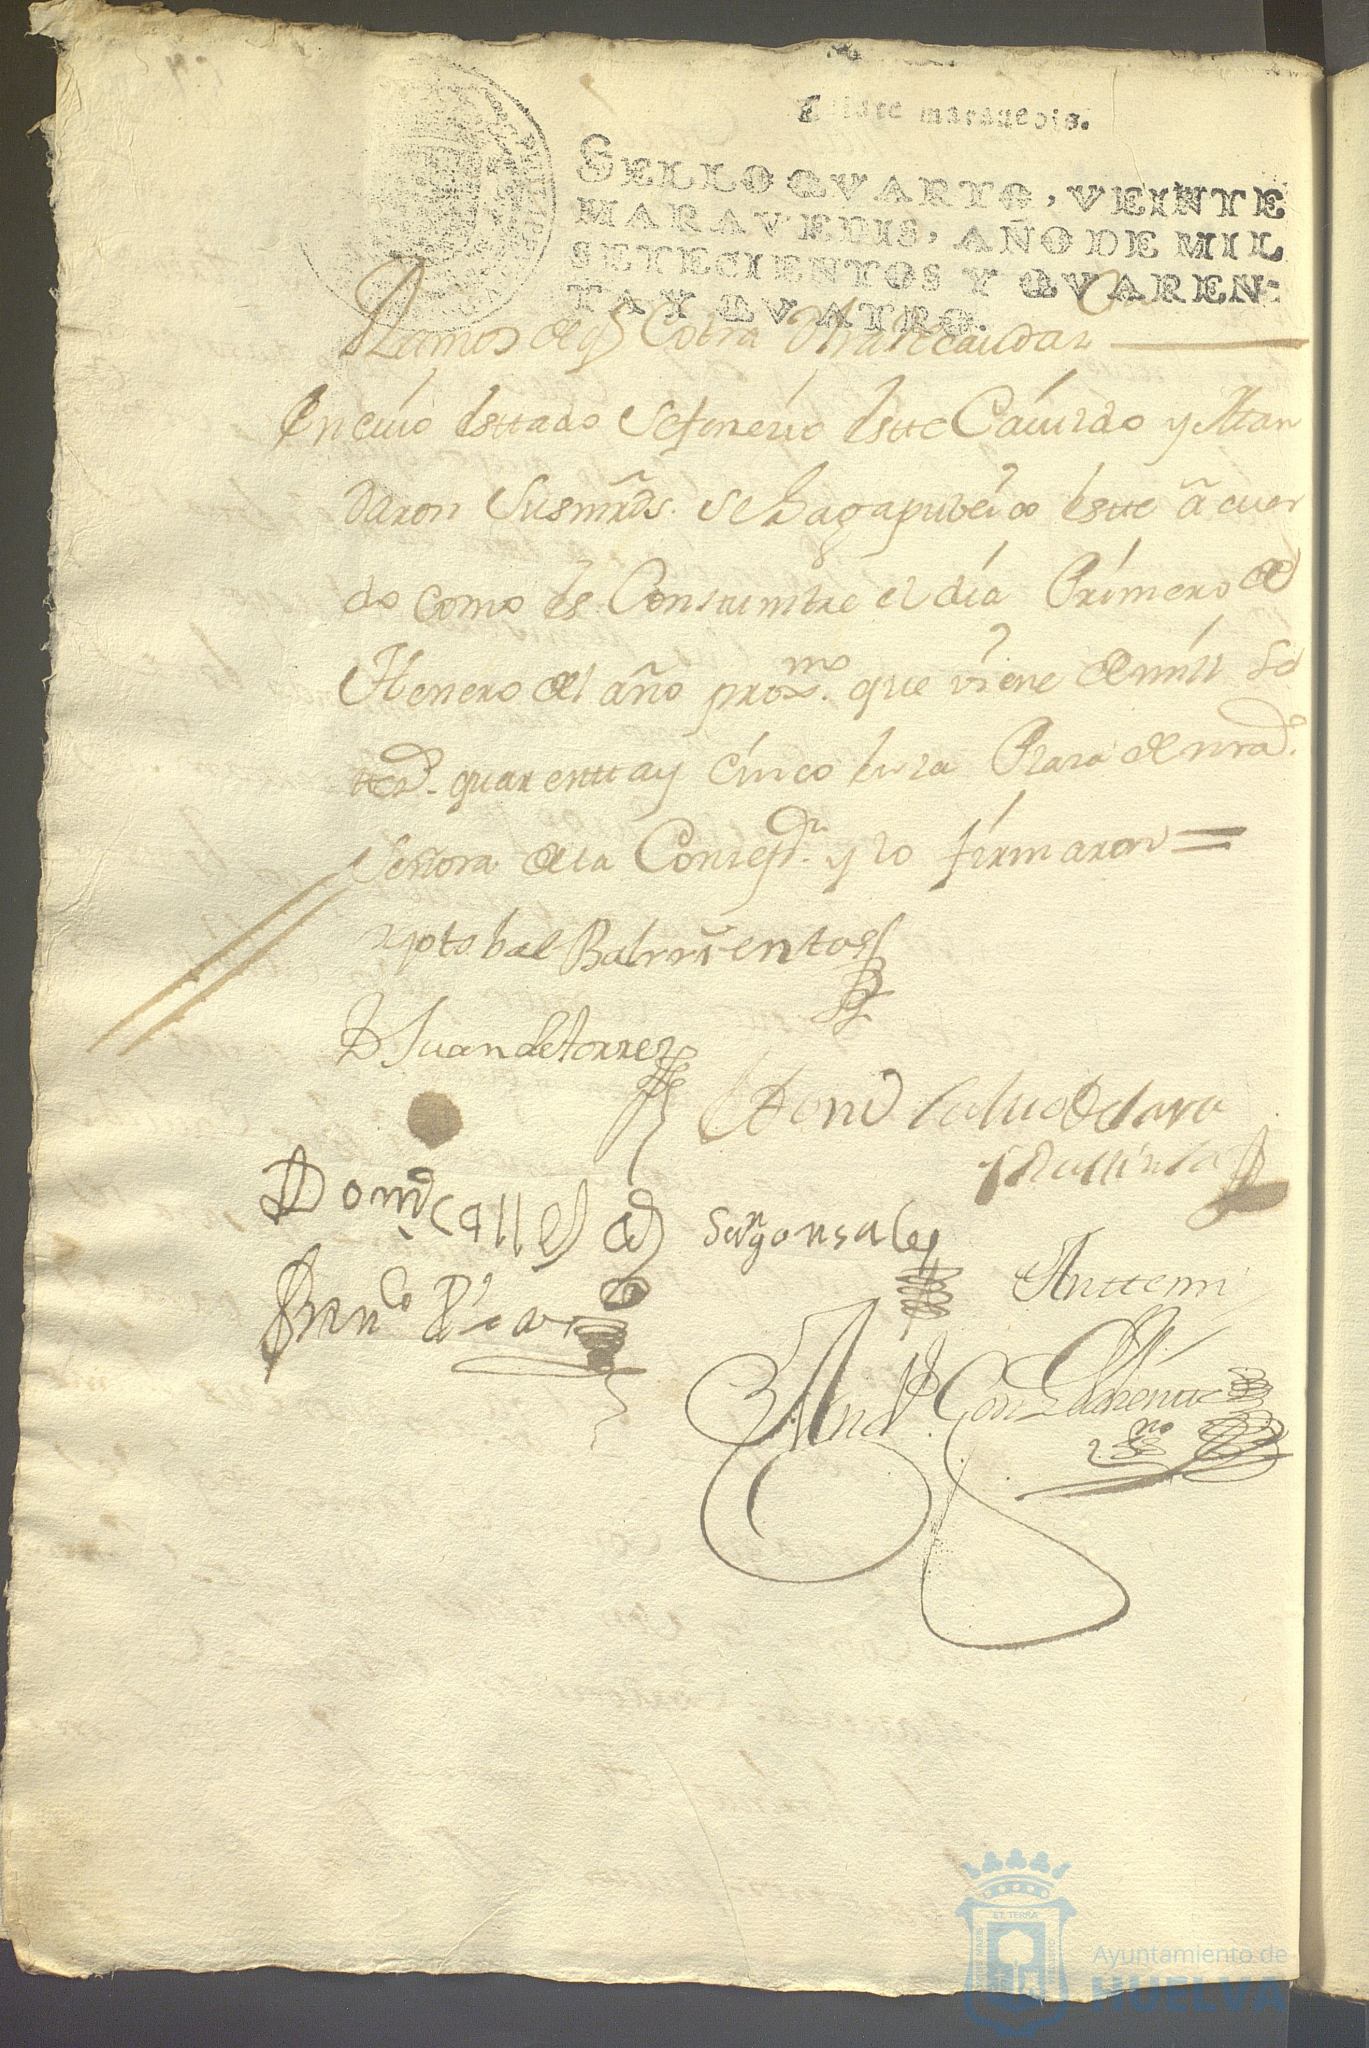 maravedis.
SELLO QVARTO, VEINTE
MARAVEDIS, AÑO DE MIL
SETECIENTOS Y QVAREN-
TA Y QVATRO.
Ramos de q Cobra
En cuio esttado se fenecio estte Cavildo y Man
daron Susmrds. se haga publico estte acuer
do como es Constumbre el dia Primero de
Henero del año proxmo. que viene de mill se
tteos. quarentta y cinco en la Plaza de nra
Señora de la Consepn. y lo firmaron =
xptobal Balrrientos
D Juan de torrez
Domo Calbo de Lara
Domo Calle
Sevn gonsales
Benco
Antte mi
Andr. Con
no
ET TERRA
Ayuntamiento de
HUELVA